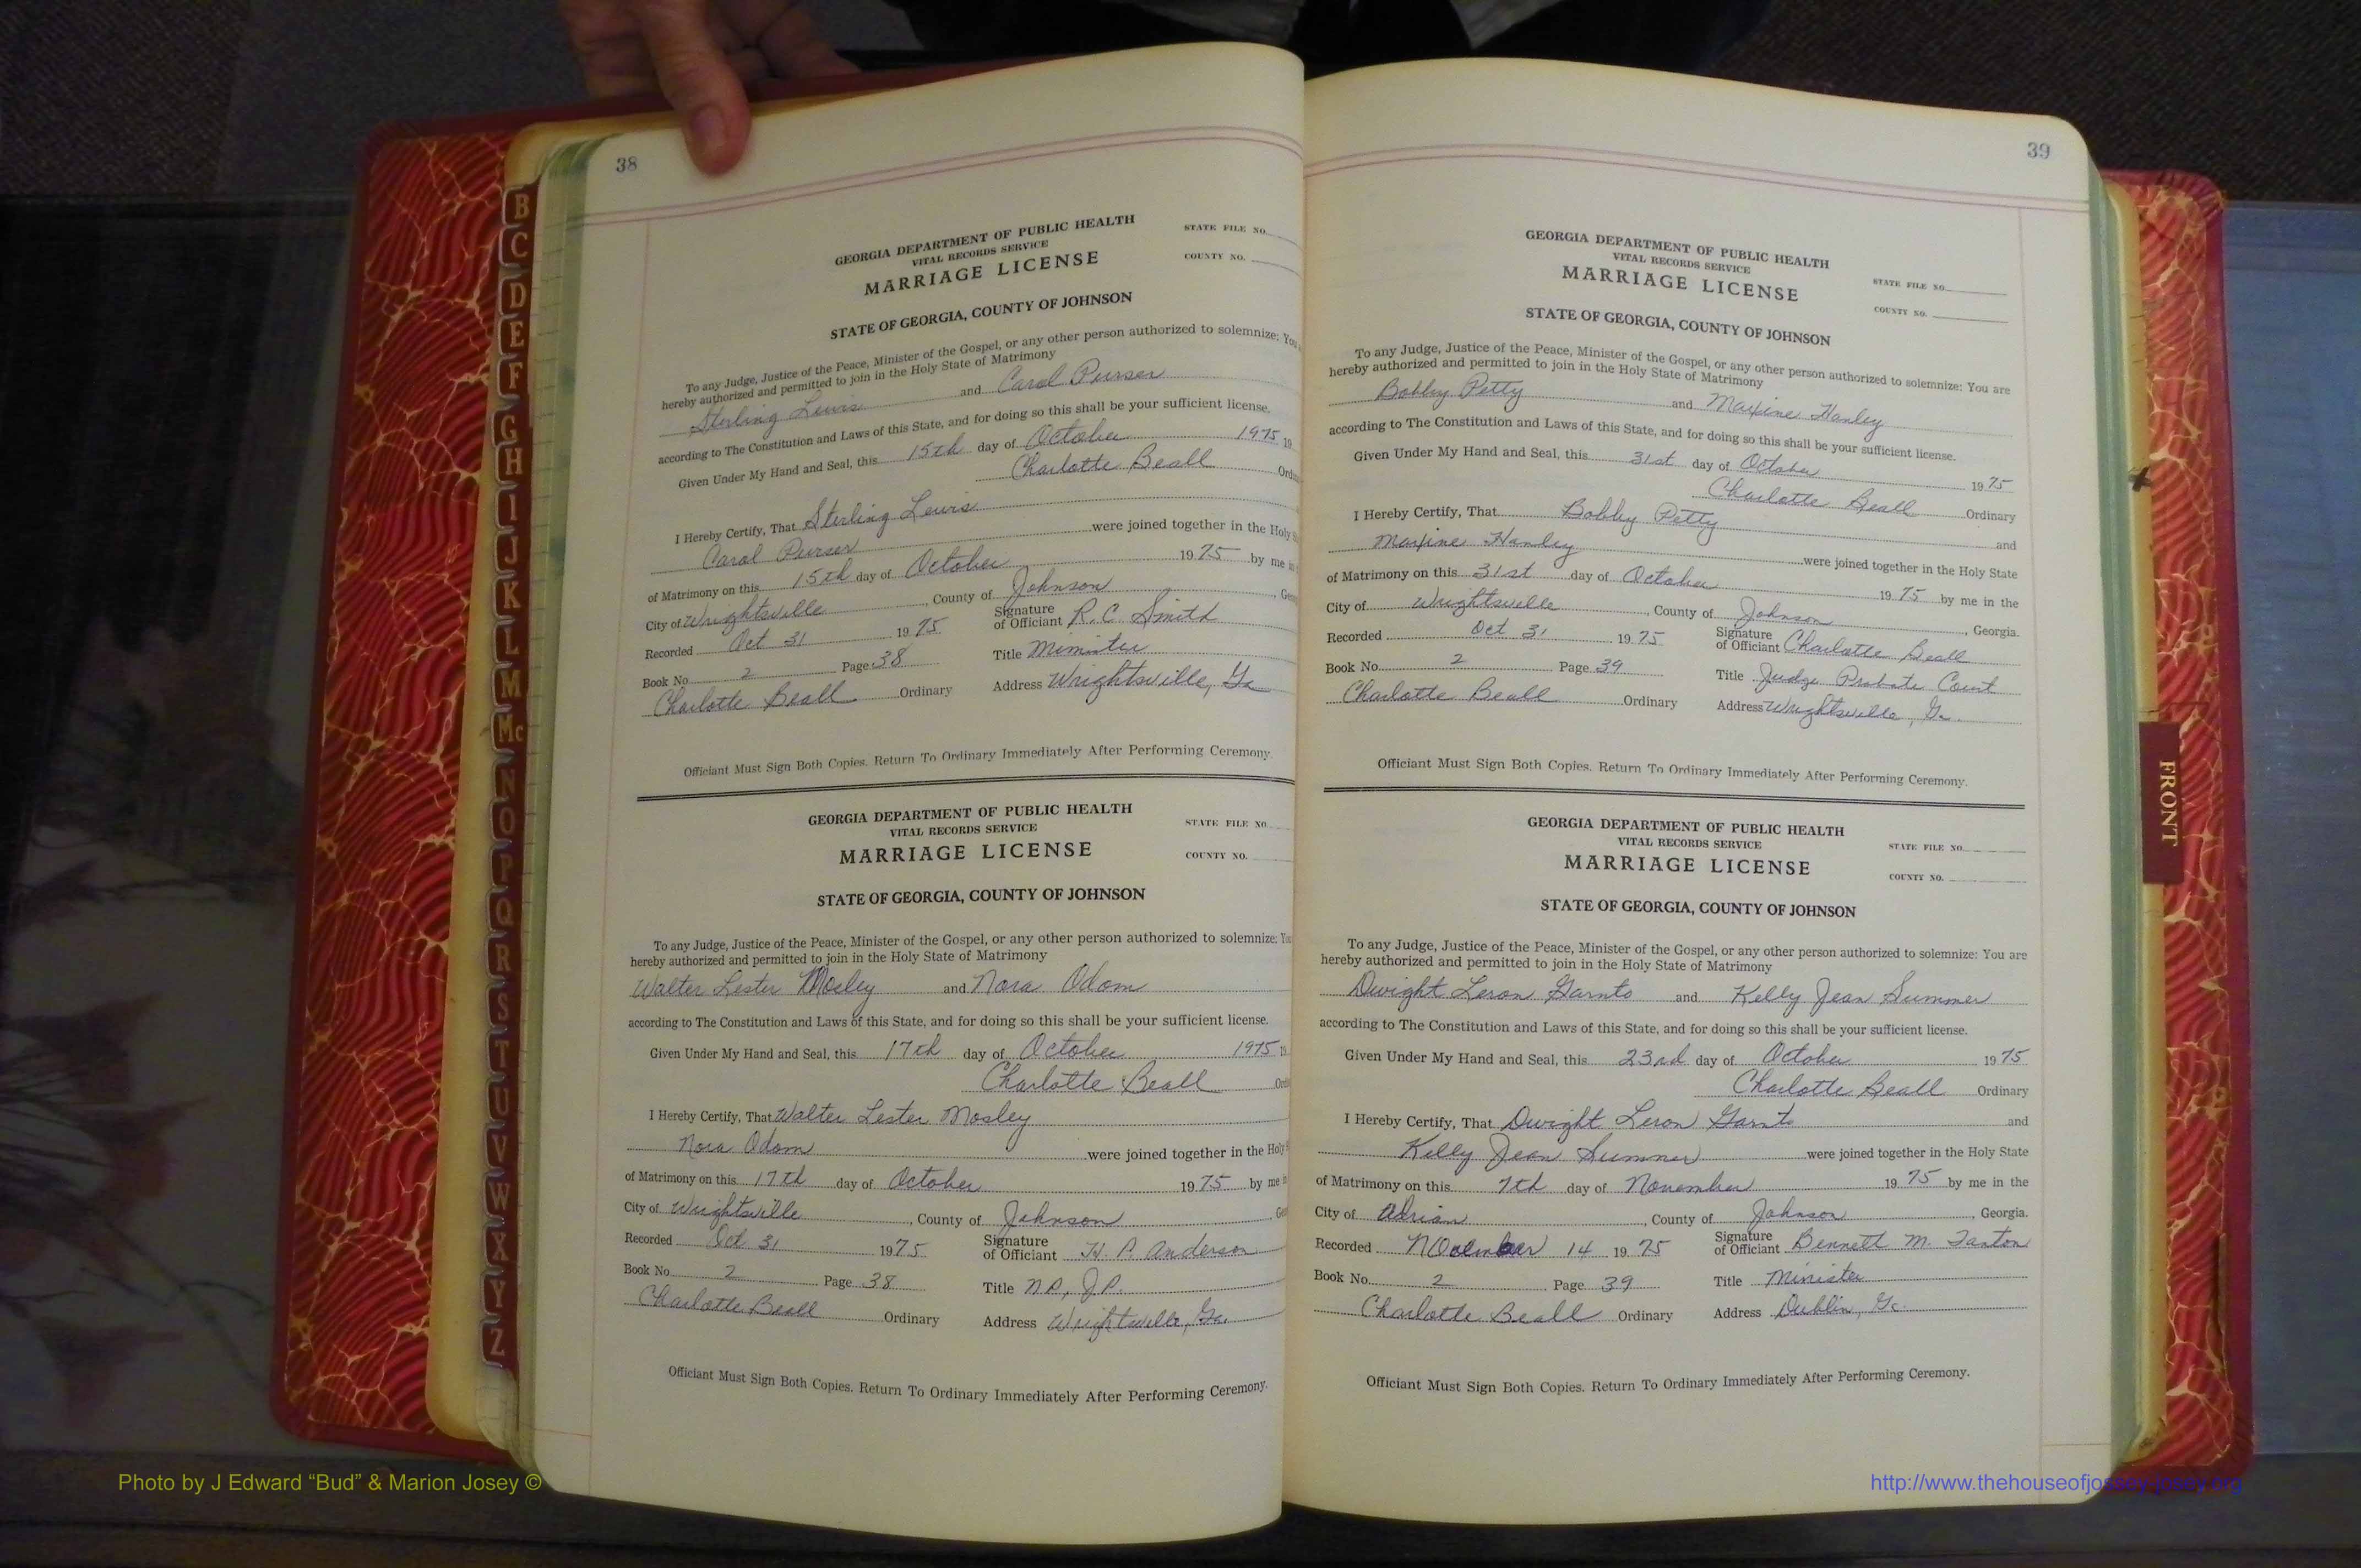 38
GEORGIA DEPARTMENT OF PUBLIC HEALTH
VITAL RECORDS SERVICE
MARRIAGE LICENSE
STATE FILE NO.
COUNTY NO.
STATE OF GEORGIA, COUNTY OF JOHNSON
To any Judge, Justice of the Peace, Minister of the Gospel, or any other person authorized to solemnize: You
hereby authorized and permitted to join in the Holy State of Matrimony
Sterling Lewis and Carol Purser
according to The Constitution and Laws of this State, and for doing so this shall be your sufficient license.
Given Under My Hand and Seal, this 15th day of October 1975 19
Charlotte Beall
I Hereby Certify, That Sterling Lewis
Carol Purser were joined together in the Holy
of Matrimony on this 15th day of October 19 75 by me in
City of Wrightsville, County of Johnson
Recorded Oct 31 19 75 Signature of Officiant R. C. Smith
Book No 2 Page 38 Title Minister
Charlotte Beall Ordinary Address Wrightsville, Ga
Officiant Must Sign Both Copies. Return To Ordinary Immediately After Performing Ceremony.
GEORGIA DEPARTMENT OF PUBLIC HEALTH
VITAL RECORDS SERVICE
MARRIAGE LICENSE
STATE FILE NO.
COUNTY NO.
STATE OF GEORGIA, COUNTY OF JOHNSON
To any Judge, Justice of the Peace, Minister of the Gospel, or any other person authorized to solemnize: You
hereby authorized and permitted to join in the Holy State of Matrimony
Walter Lester Mosley and Nora Odom
according to The Constitution and Laws of this State, and for doing so this shall be your sufficient license.
Given Under My Hand and Seal, this 17th day of October 1975
Charlotte Beall
I Hereby Certify, That Walter Lester Mosley
Nora Odom were joined together in the Holy
of Matrimony on this 17th day of October 19 75 by me
City of Wrightsville, County of Johnson
Recorded Oct 31 19 75 Signature of Officiant H. P. Anderson
Book No. 2 Page 38 Title N.P., J.P.
Charlotte Beall Ordinary Address Wrightsville, Ga.
Officiant Must Sign Both Copies. Return To Ordinary Immediately After Performing Ceremony.
39
GEORGIA DEPARTMENT OF PUBLIC HEALTH
VITAL RECORDS SERVICE
MARRIAGE LICENSE
STATE FILE NO.
COUNTY NO.
STATE OF GEORGIA, COUNTY OF JOHNSON
To any Judge, Justice of the Peace, Minister of the Gospel, or any other person authorized to solemnize: You are
hereby authorized and permitted to join in the Holy State of Matrimony
Bobby Petty and Maxine Hanley
according to The Constitution and Laws of this State, and for doing so this shall be your sufficient license.
Given Under My Hand and Seal, this 31st day of October 19 75
Charlotte Beall Ordinary
I Hereby Certify, That Bobby Petty and
Maxine Hanley were joined together in the Holy State
of Matrimony on this 31st day of October 19 75 by me in the
City of Wrightsville, County of Johnson, Georgia.
Recorded Oct 31 19 75 Signature of Officiant Charlotte Beall
Book No. 2 Page 39 Title Judge Probate Court
Charlotte Beall Ordinary Address Wrightsville, Ga.
Officiant Must Sign Both Copies. Return To Ordinary Immediately After Performing Ceremony.
GEORGIA DEPARTMENT OF PUBLIC HEALTH
VITAL RECORDS SERVICE
MARRIAGE LICENSE
STATE FILE NO.
COUNTY NO.
STATE OF GEORGIA, COUNTY OF JOHNSON
To any Judge, Justice of the Peace, Minister of the Gospel, or any other person authorized to solemnize: You are
hereby authorized and permitted to join in the Holy State of Matrimony
Dwight Leron Garnto and Kelly Jean Summer
according to The Constitution and Laws of this State, and for doing so this shall be your sufficient license.
Given Under My Hand and Seal, this 23rd day of October 19 75
Charlotte Beall Ordinary
I Hereby Certify, That Dwight Leron Garnto and
Kelly Jean Summer were joined together in the Holy State
of Matrimony on this 7th day of November 19 75 by me in the
City of Adrian, County of Johnson, Georgia.
Recorded November 14 19 75 Signature of Officiant Bennett M.
Book No. 2 Page 39 Title Minister
Charlotte Beall Ordinary Address Dublin, Ga.
Officiant Must Sign Both Copies. Return To Ordinary Immediately After Performing Ceremony.
B
C
D
E
F
G
H
I
J
K
L
M
Mc
N
O
P
Q
R
S
T
U
V
W
X
Y
Z
FRONT
Photo by J Edward “Bud” & Marion Josey ©
http://www.thehouseofjossey-josey.org